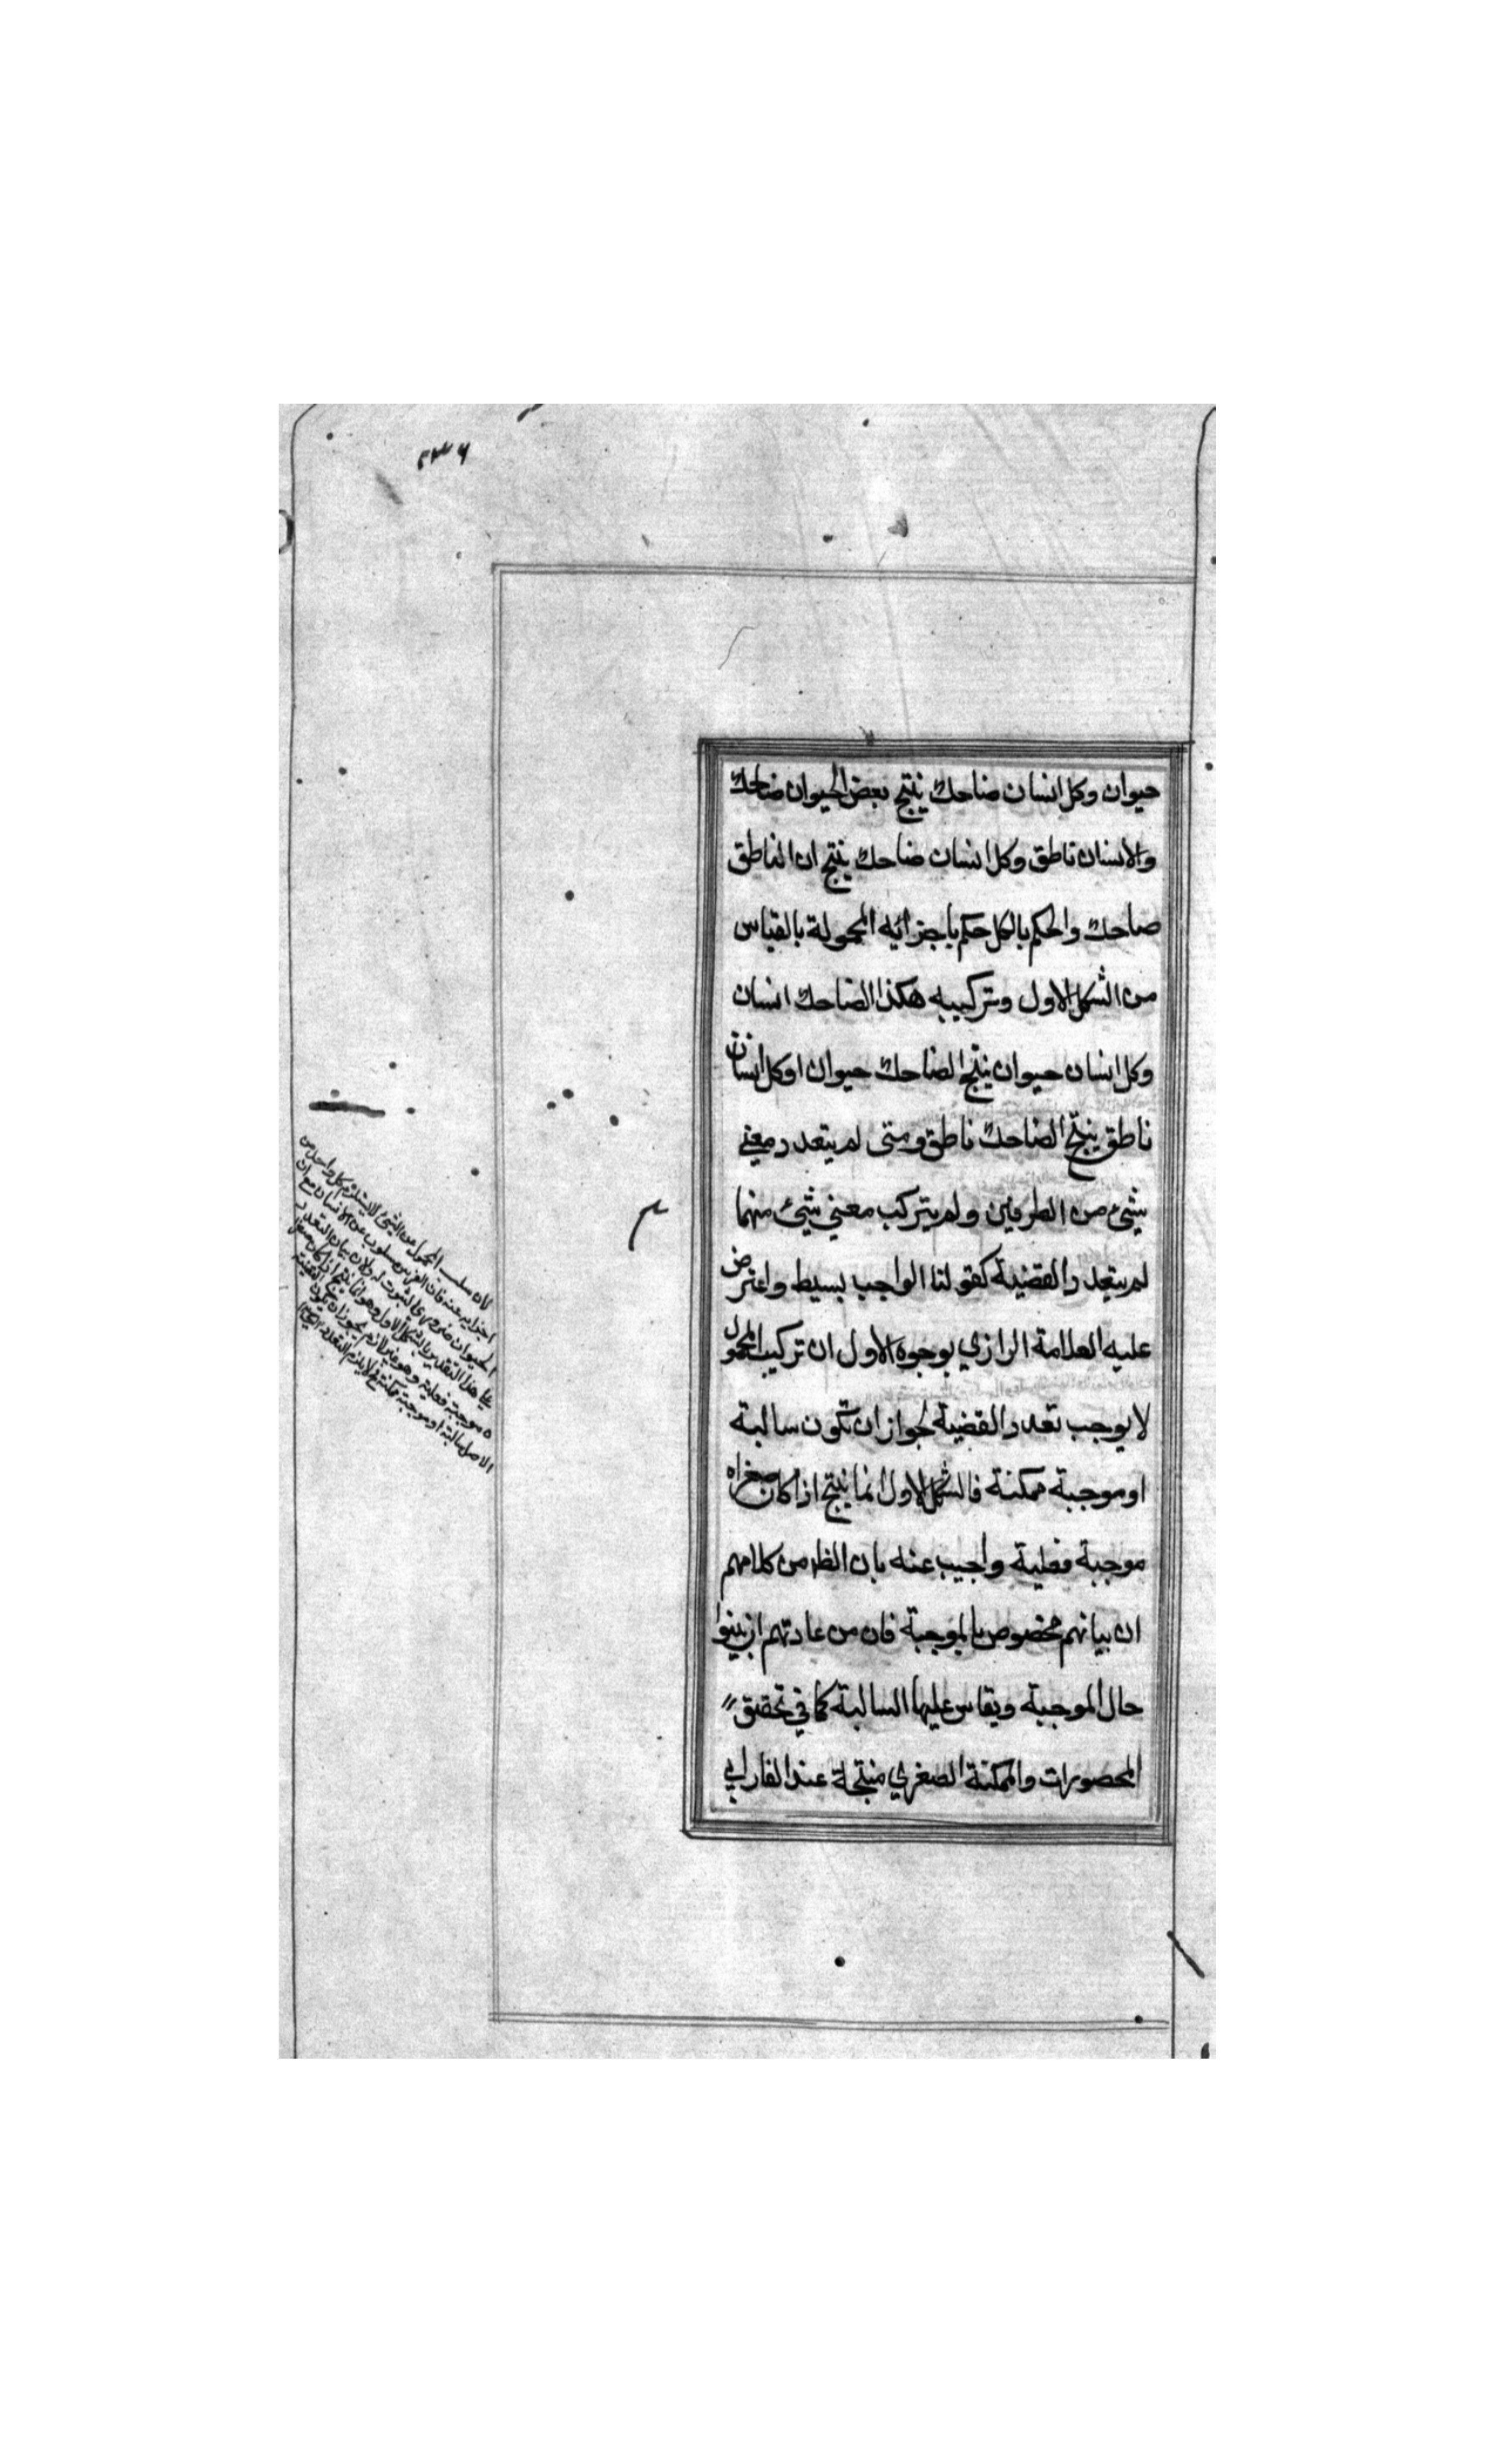 ٢٣٦
حيوان وكل انسان ضاحك ينتج بعض الحيوان ضاحك
والانسان ناطق وكل انسان ضاحك ينتج ان الناطق
ضاحك والحكم بالكل حكم باجزائه المحمولة بالقياس
من الشكل الاول وتركيبه هكذا الضاحك انسان
وكل انسان حيوان ينتج الضاحك حيوان او كل انسان
ناطق ينتج الضاحك ناطق ومتى لم يتعدد معني
شيئ من الطرفين ولم يتركب معني شيئ منهما
لم يتعدد القضية كقولنا الواجب بسيط واعترض
عليه العلامة الرازي بوجوه الاول ان تركيب المحمول
لا يوجب تعدد القضية لجواز ان تكون سالبة
او موجبة ممكنة فالشكل الاول انما ينتج اذا كان صغراه
موجبة فعلية واجيب عنه بان الظ من كلامهم
ان بيانهم مخصوص بالموجبة فان من عادتهم ان يبينوا
حال الموجبة ويقاس عليها السالبة كما في تحقيق
المحصورات والممكنة الصغري منتجة عند الفارابي
لان سلب المحمول عن الشيئ لا يستلزم كل واحد من
اجزايه عنه فان الفرس مسلوب عن الانسان مع ان
الحيوان ضروري الثبوت له ولان بيان التعدد
علي هذا التقدير بالشكل الاول وهو انما ينتج اذا كان
موجبة فعلية وهو غير لازم لجواز ان يكون
الاصل سالبة او موجبة ممكنة فلا يلزم التعدد